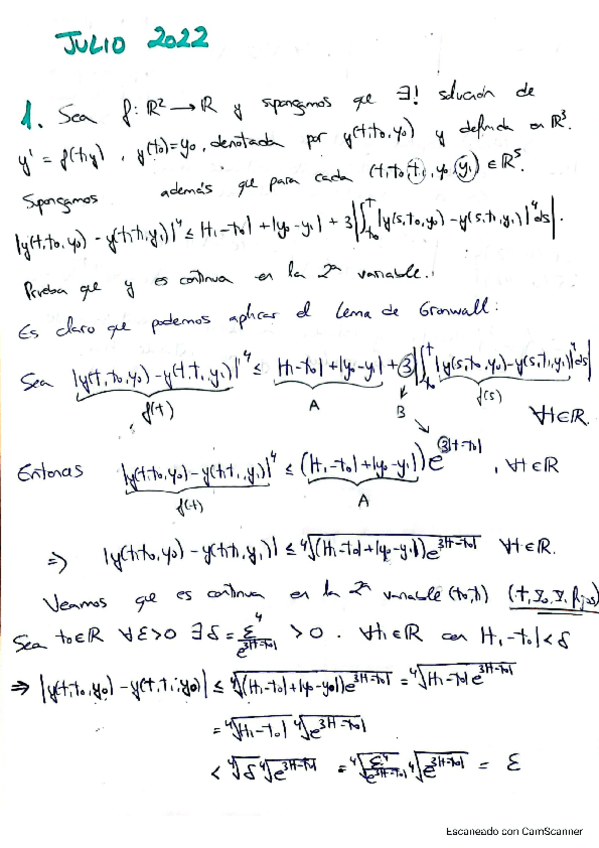 JULIO 2022
1. Sea f: ℝ² → ℝ y supongamos que ∃! solución de
y' = f(t,y), y(t₀)=y₀, denotada por y(t,t₀,y₀) y definida en ℝ³.
Supongamos además que para cada (t,t₀,t₁,y₀,y₁) ∈ ℝ⁵.
|y(t,t₀,y₀) - y(t,t₁,y₁)|⁴ ≤ |t₁-t₀| + |y₀-y₁| + 3|∫_{t₀}^{t} |y(s,t₀,y₀) - y(s,t₁,y₁)|⁴ds|.
Prueba que y es continua en la 2ª variable.
Es claro que podemos aplicar el Lema de Gronwall:
Sea |y(t,t₀,y₀) - y(t,t₁,y₁)|⁴ ≤ |t₁-t₀| + |y₀-y₁| + 3|∫_{t₀}^{t} |y(s,t₀,y₀)-y(s,t₁,y₁)|⁴ds|
f(t) A B f(s)
∀t∈ℝ.
Entonces |y(t,t₀,y₀)-y(t,t₁,y₁)|⁴ ≤ (|t₁-t₀|+|y₀-y₁|)e^{3|t-t₀|}, ∀t∈ℝ
f(t) A
⇒) |y(t,t₀,y₀) - y(t,t₁,y₁)| ≤ ⁴√((|t₁-t₀|+|y₀-y₁|)e^{3|t-t₀|}) ∀t∈ℝ.
Veamos que es continua en la 2ª variable (t₀,t₁) (t, y₀, y₁ fijos)
Sea t₀∈ℝ ∀ε>0 ∃δ = ε⁴/e^{3|t-t₀|} > 0. ∀t₁∈ℝ con |t₁-t₀|<δ
⇒ |y(t,t₀,y₀) - y(t,t₁,y₀)| ≤ ⁴√((|t₁-t₀|+|y₀-y₀|)e^{3|t-t₀|}) = ⁴√(|t₁-t₀|e^{3|t-t₀|})
= ⁴√|t₁-t₀| ⁴√e^{3|t-t₀|}
< ⁴√δ ⁴√e^{3|t-t₀|} = ⁴√(ε⁴/e^{3|t-t₀|}) ⁴√e^{3|t-t₀|} = ε
Escaneado con CamScanner